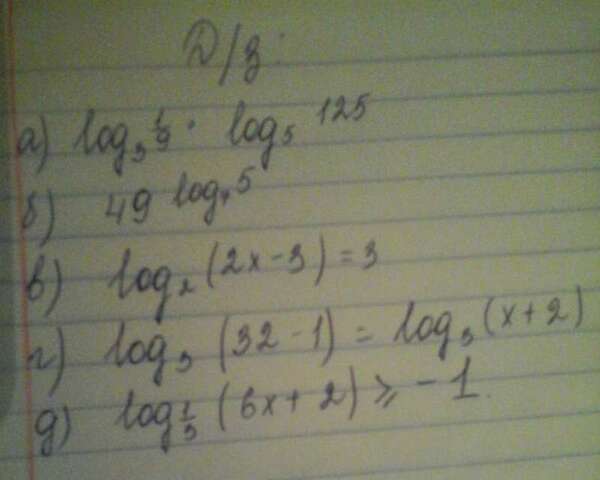 Д/з:
а) log₃ 1/9 · log₅ 125
б) 49^log₇ 5
в) log₂ (2x-3) = 3
г) log₃ (32-1) = log₃ (x+2)
д) log_1/5 (6x+2) ≥ -1.